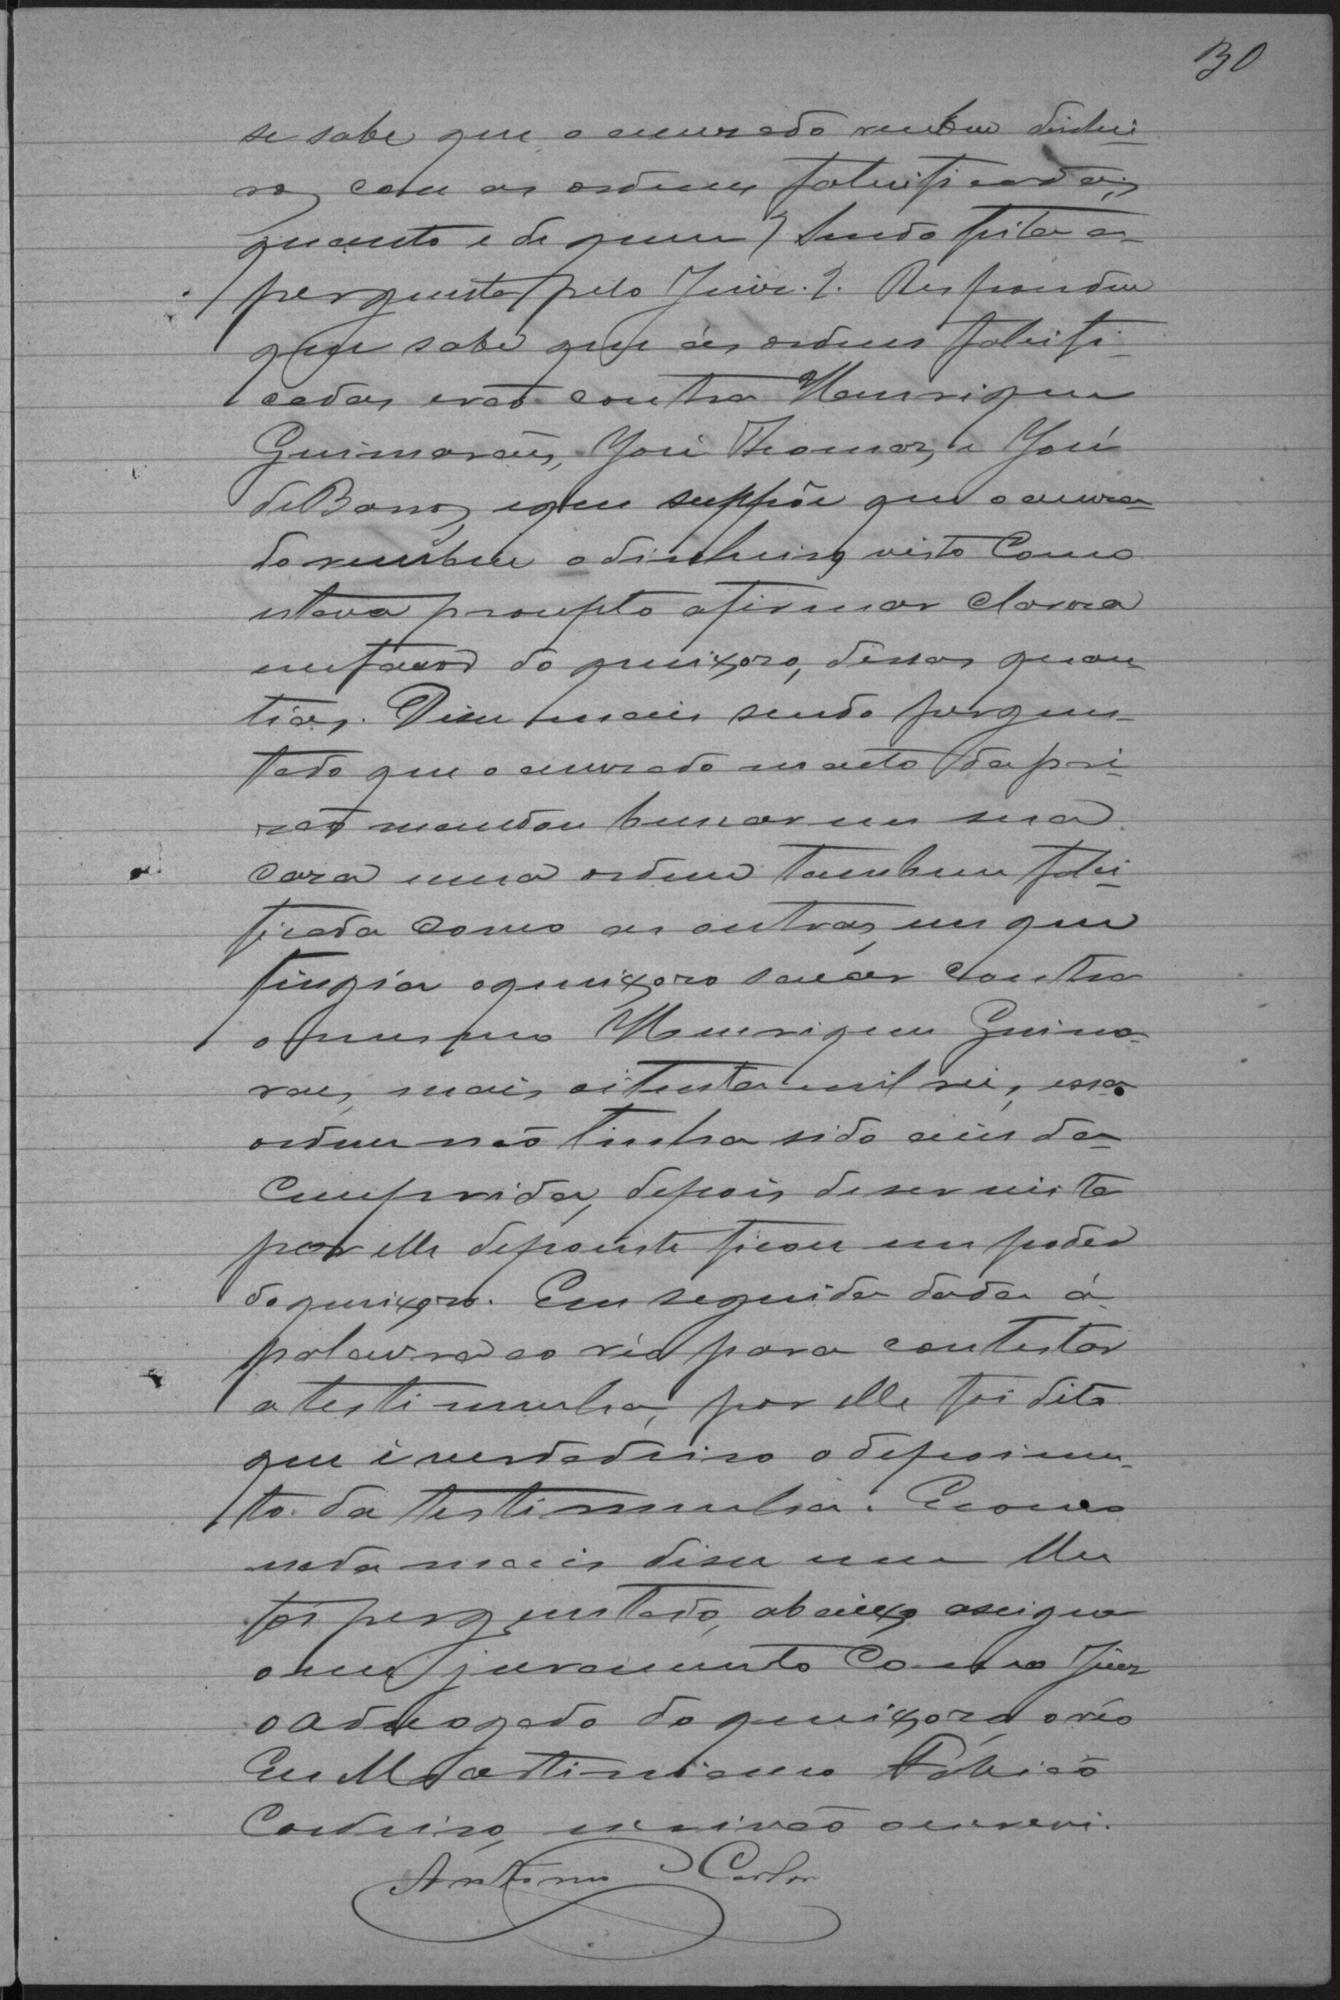 30
se sabe que o accusado recebeu dinhei-
ro, com as ordens falsificadas,
quanto e de quem? Sendo feita a
pergunta pelo Juiz. Respondeu
que sabe que ás ordens falsifi-
cadas erão contra Henrique
Guimarães, José Thomaz, e José
de Barros, e que suppõe que o accusa-
do recebeu o dinheiro, visto como
estava prompto a firmar clareza
em favor do queixoso, dessas quan-
tias. Disse mais sendo pergun-
tado que o accusado no acto da pri-
zão mandou buscar em sua
caza uma ordem tambem falsi-
ficada como as outras, em que
fingia o queixozo sacar contra
o mesmo Henrique Guima-
raes, mais oitenta mil reis, essa
ordem não tinha sido ainda
cumprida, depois de ser vista
por elle depoente ficou em poder
do queixozo. Em seguida dada á
palavra ao réo para contestar
a testimunha, por elle foi dito
que é verdadeiro o depoimen-
to da testimunha. E como
nada mais disse nem lhe
foi perguntado, abaixo assigna
o seu juramento com o Juiz
o advogado do queixozo, o réo
Eu Martiniano Fabião
Cordeiro, escrivão escrevi.
Antonio Carlos